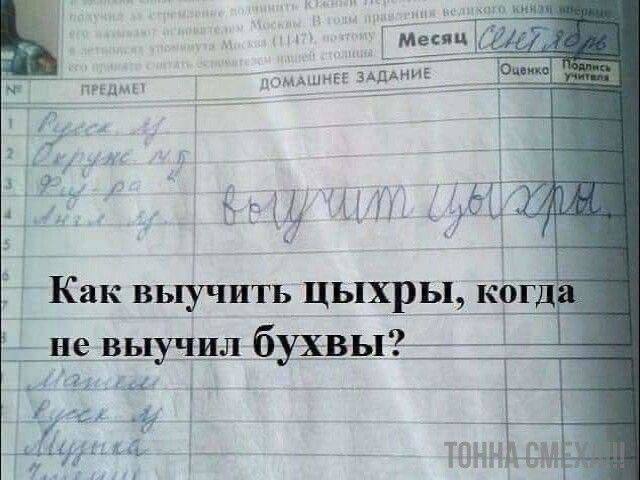 получил за стремление подчинить Южный
его называют основателем Москвы. В годы правления великого князя впервые
в летописях упомянута Москва (1147), поэтому
его принято считать основателем нашей столицы.
Месяц Сентябрь
№ ПРЕДМЕТ ДОМАШНЕЕ ЗАДАНИЕ Оценка Подпись учителя
1 Русск. яз
2 Окруж.
3 Физ-ра
4 Англ. яз. выучит цыхры.
5
Как выучить цыхры, когда
не выучил бухвы?
Матем
Русск. яз
Музыка
Чтение
ТОННА СМЕХА!!!